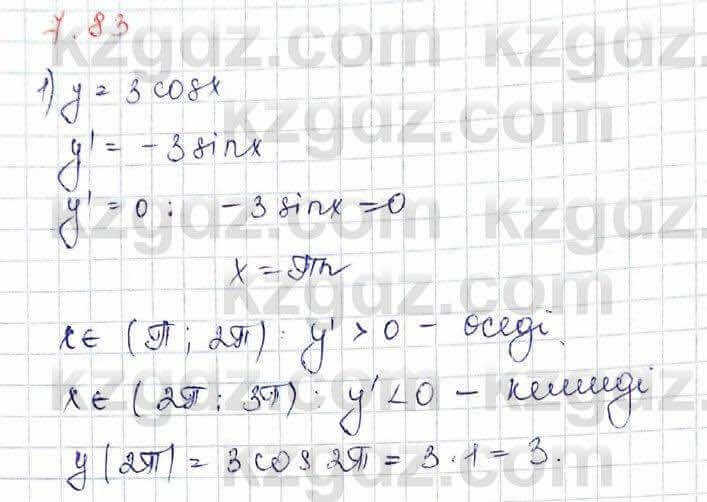 7.83
1) y = 3 cosx
y' = -3 sinx
y' = 0 : -3 sinx = 0
x = πn
x ∈ (π ; 2π) : y' > 0 - өседі.
x ∈ (2π ; 3π) : y' < 0 - кемиді
y(2π) = 3 cos 2π = 3 · 1 = 3.
kzgdz.com kzgdz.com
kzgdz.com
kzgdz.com kzgdz.com
kzgdz.com
kzgdz.com kzgdz.com
kzgdz.com